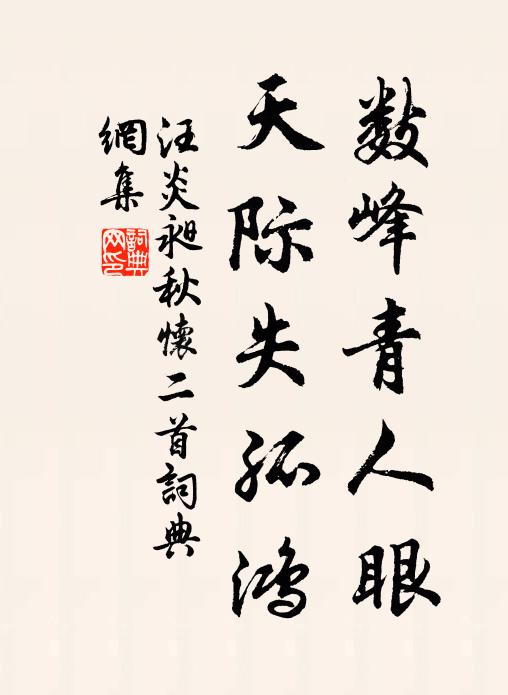 数峰青人眼
天际失孤鸿
汪炎昶秋懷二首詞典
網集
詞典网印